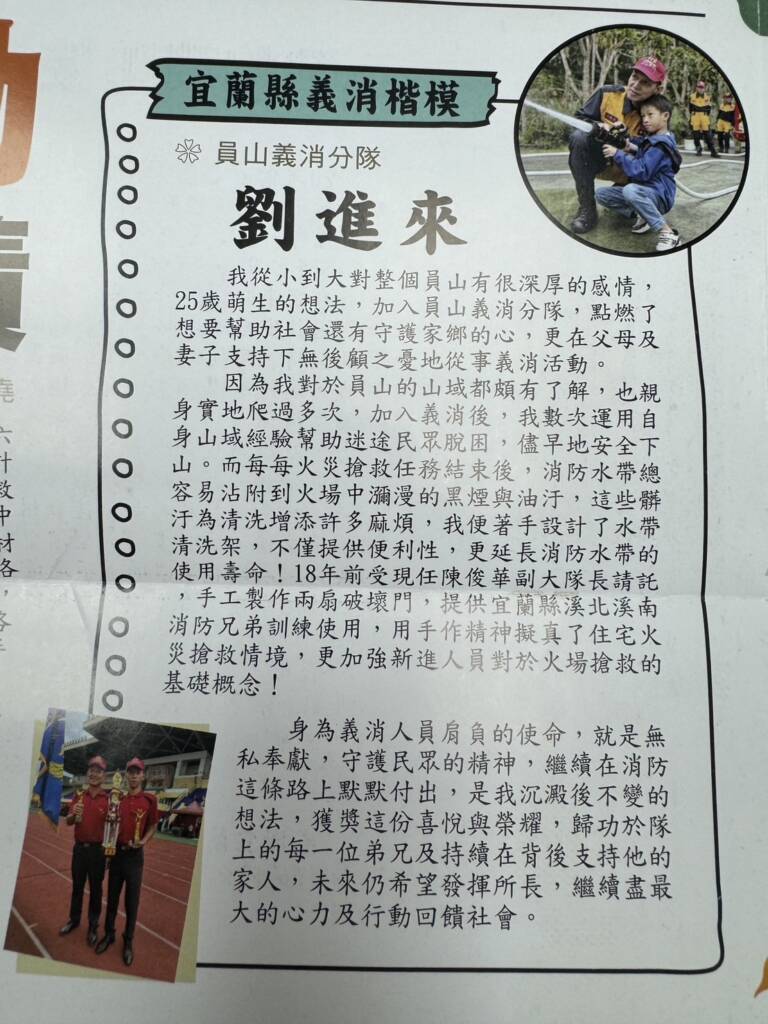 宜蘭縣義消楷模
員山義消分隊
劉進來
我從小到大對整個員山有很深厚的感情，
25歲萌生的想法，加入員山義消分隊，點燃了
想要幫助社會還有守護家鄉的心，更在父母及
妻子支持下無後顧之憂地從事義消活動。
因為我對於員山的山域都頗有了解，也親
身實地爬過多次，加入義消後，我數次運用自
身山域經驗幫助迷途民眾脫困，儘早地安全下
山。而每每火災搶救任務結束後，消防水帶總
容易沾附到火場中瀰漫的黑煙與油汙，這些髒
汙為清洗增添許多麻煩，我便著手設計了水帶
清洗架，不僅提供便利性，更延長消防水帶的
使用壽命！18年前受現任陳俊華副大隊長請託
，手工製作兩扇破壞門，提供宜蘭縣溪北溪南
消防兄弟訓練使用，用手作精神擬真了住宅火
災搶救情境，更加強新進人員對於火場搶救的
基礎概念！
身為義消人員肩負的使命，就是無
私奉獻，守護民眾的精神，繼續在消防
這條路上默默付出，是我沉澱後不變的
想法，獲獎這份喜悅與榮耀，歸功於隊
上的每一位弟兄及持續在背後支持他的
家人，未來仍希望發揮所長，繼續盡最
大的心力及行動回饋社會。